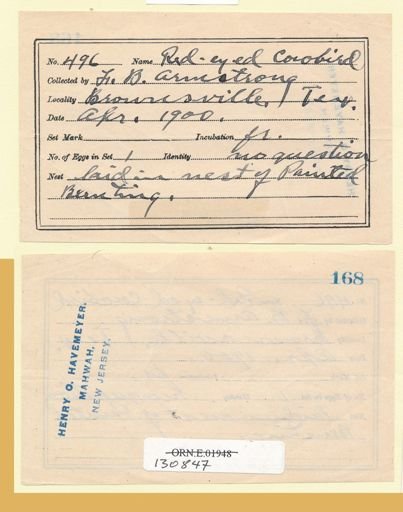 No. 496 Name Red-eyed Cowbird
Collected by F. B. Armstrong
Locality Brownsville, Tex.
Date Apr. 1900.
Set Mark Incubation fr.
No. of Eggs in Set 1 Identity no question
Nest laid in nest of Painted
Bunting.
168
HENRY O. HAVEMEYER,
MAHWAH,
NEW JERSEY.
ORN.E.01948
130847